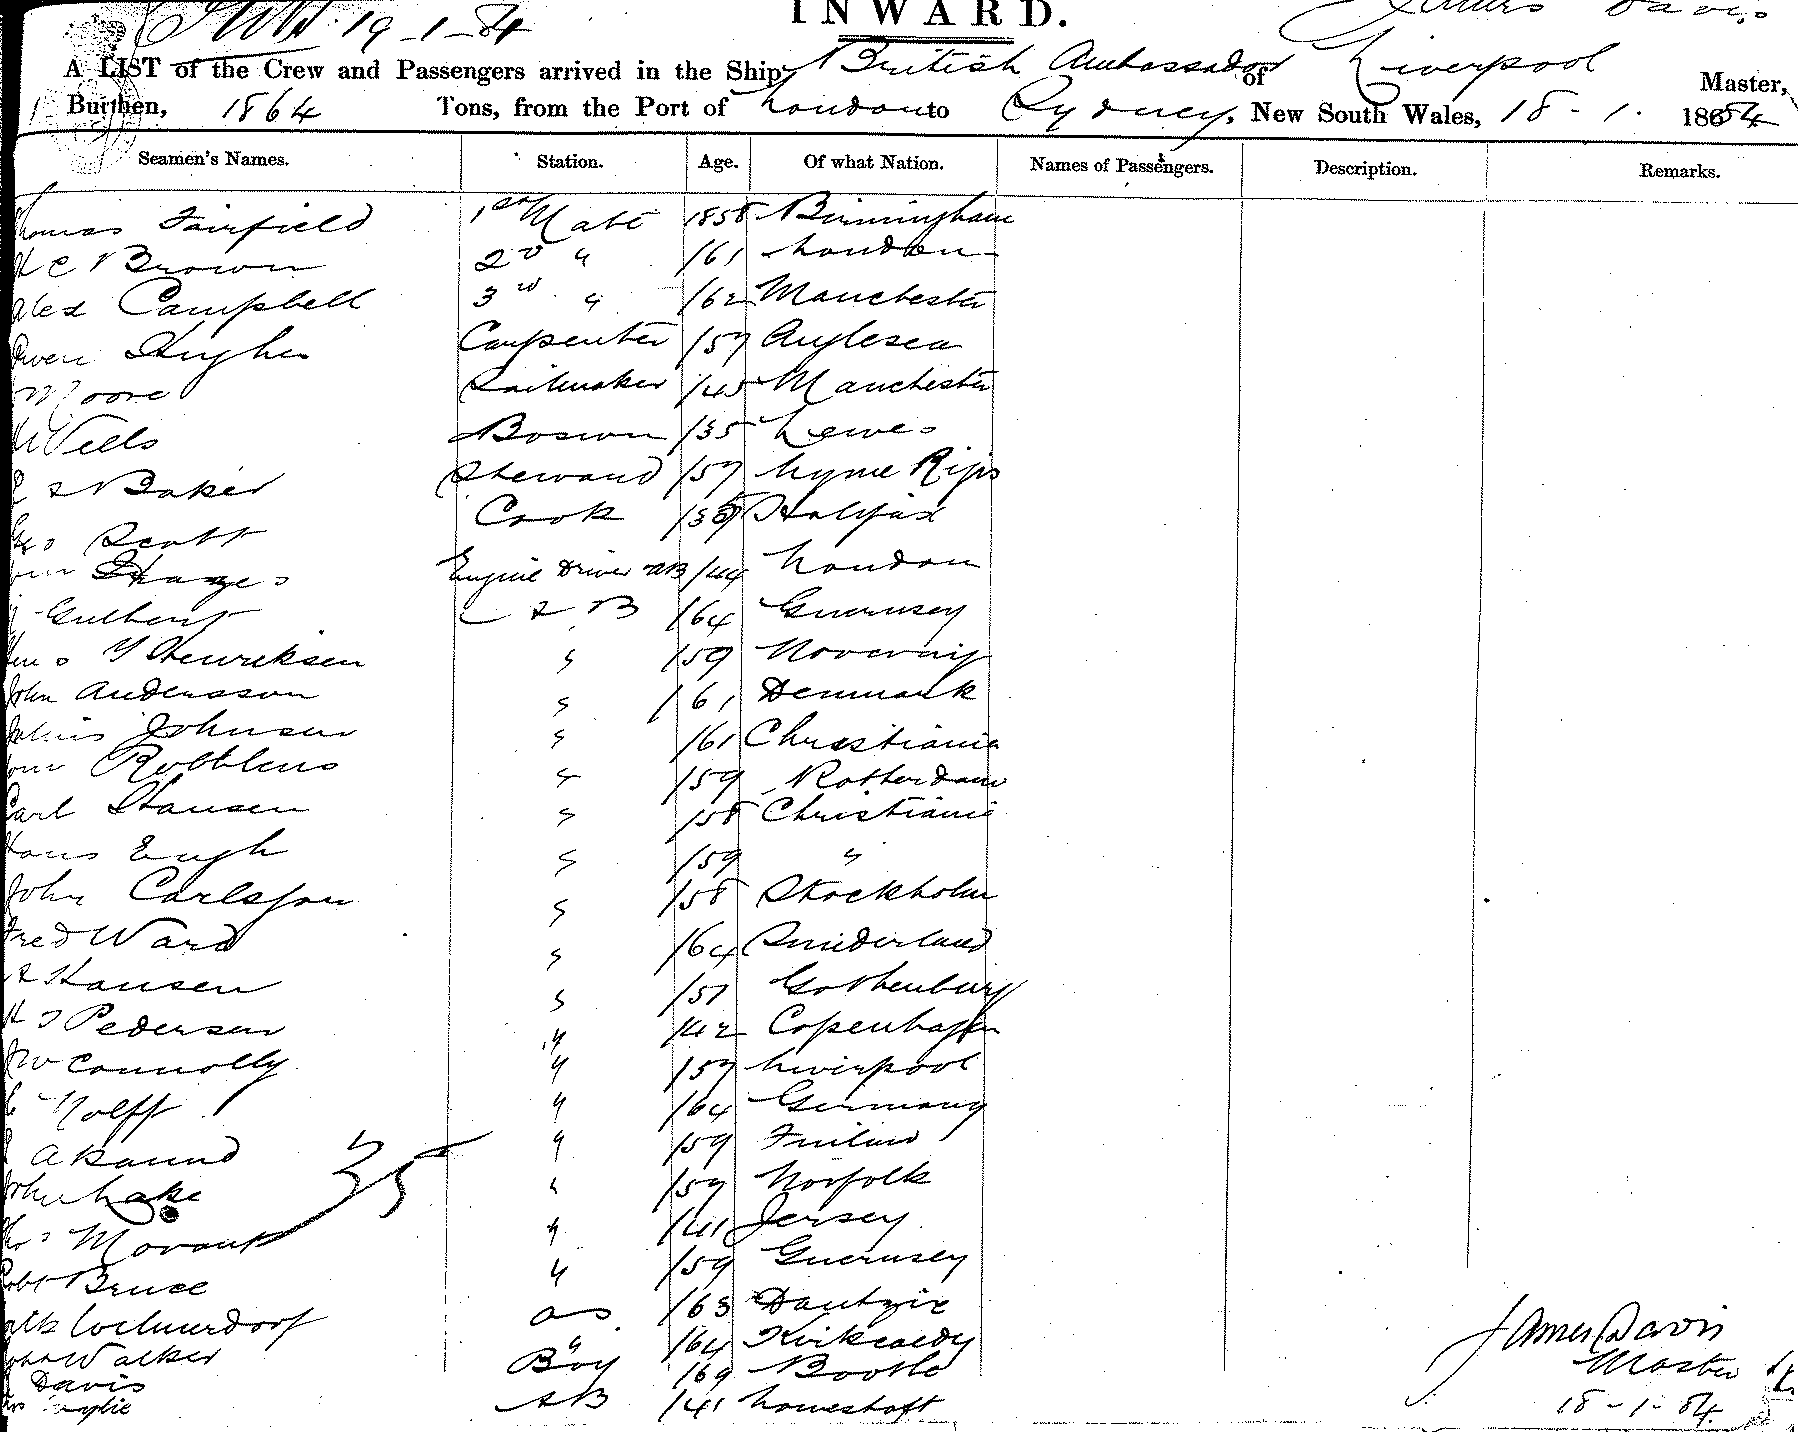 19-1-84
INWARD.
James Davis
A LIST of the Crew and Passengers arrived in the Ship British Ambassador of Liverpool Master,
Burthen, 1864 Tons, from the Port of London to Sydney, New South Wales, 18-1. 1884
Seamen's Names. Station. Age. Of what Nation. Names of Passengers. Description. Remarks.
Thomas Fairfield 1st Mate 1858 Birmingham
H C Brown 2d " /61 London
Alex Campbell 3rd " /62 Manchester
Owen Hughes Carpenter /57 Anglesea
Moore Sailmaker /45 Manchester
Wells Boswn /35 Lewes
Baker Steward /57 Lyme Rigis
Geo Scott Cook Halifax
Hayes Engine Driver AB /44 London
Gulbert AB /64 Guernsey
Henriksen " /59 Norway
John Andersson " /61 Denmark
Julius Johnsen " /61 Christiania
Robblens " /59 Rotterdam
Carl Hansen " /58 Christiania
Hans Engh " /59 "
John Carlsson " /58 Stockholm
Fred Ward " /64 Sunderland
A Hansen " /57 Gothenburg
Pedersen " /42 Copenhagen
JW Connolly " /57 Liverpool
Wolff " /64 Germany
" /59 Finland
John Lake " /59 Norfolk
35
Mourant " /41 Jersey
Robt Bruce " /59 Guernsey
OS /63 Dantzic
John Walker " /64 Kirkcaldy
Davis Boy /69 Bootle
AB /41 Lowestoft
James Davis
Master
18-1-84